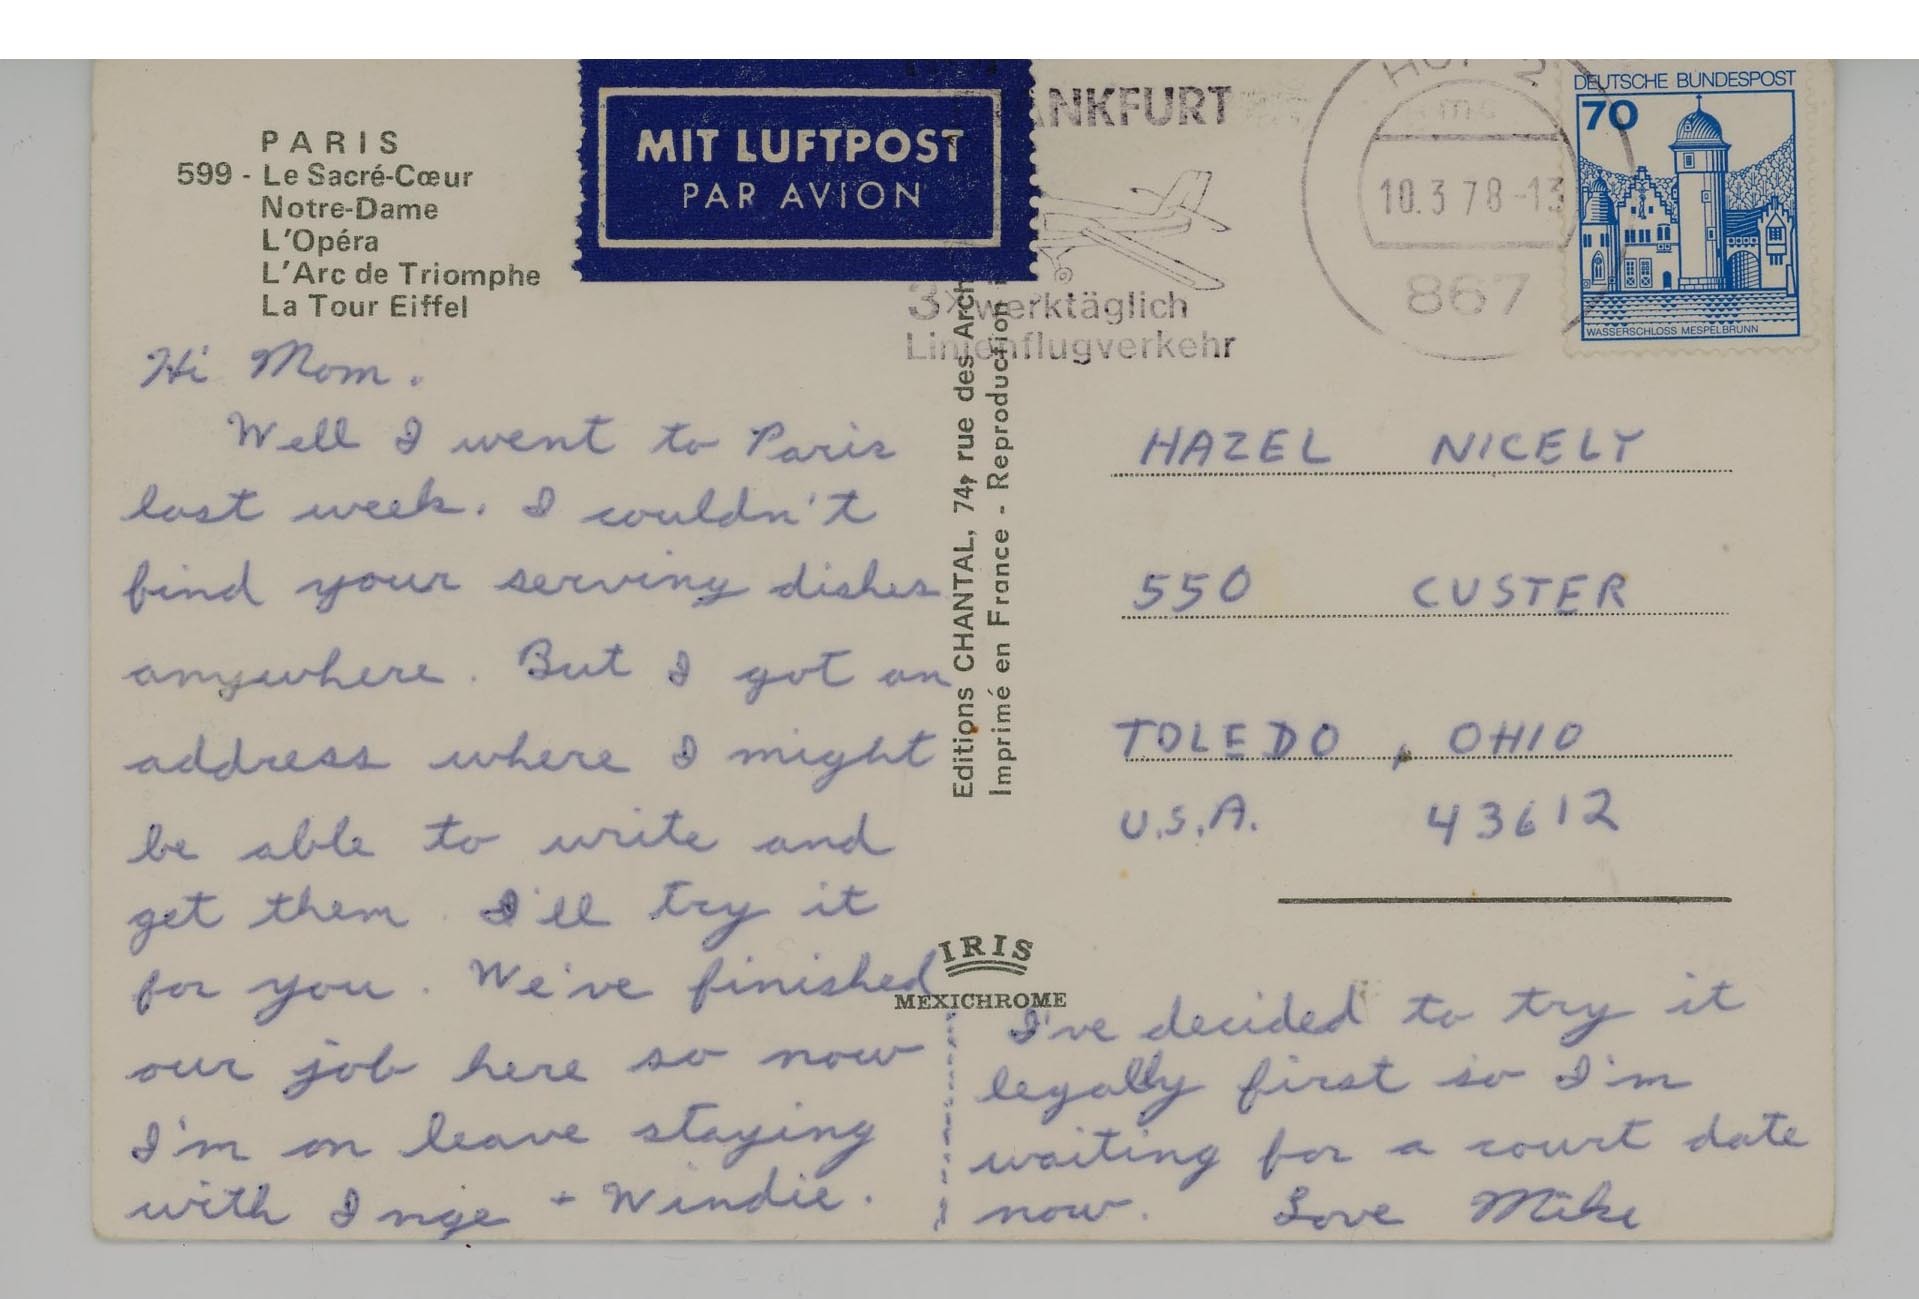 PARIS
599 - Le Sacré-Cœur
Notre-Dame
L'Opéra
L'Arc de Triomphe
La Tour Eiffel
MIT LUFTPOST
PAR AVION
ANKFURT
3x werktäglich
Linienflugverkehr
HOF 2
10.3.78-13
867
DEUTSCHE BUNDESPOST
70
WASSERSCHLOSS MESPELBRUNN
Hi Mom.
Well I went to Paris
last week. I couldn't
find your serving dishes
anywhere. But I got an
address where I might
be able to write and
get them. I'll try it
for you. We've finished
our job here so now
I'm on leave staying
with Inge + Windie.
Editions CHANTAL, 74, rue des Arch
Imprimé en France - Reproduction
IRIS
MEXICHROME
HAZEL NICELY
550 CUSTER
TOLEDO, OHIO
U.S.A. 43612
I've decided to try it
legally first so I'm
waiting for a court date
now. Love Mike